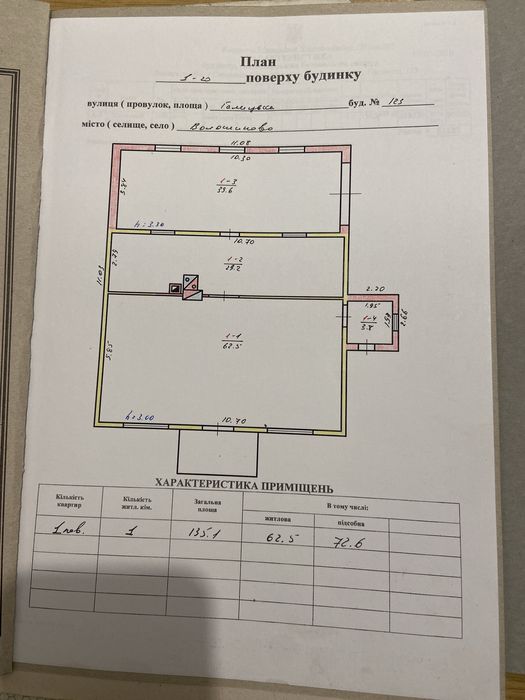 План
1-го поверху будинку
вулиця ( провулок, площа ) Галицька буд. № 125
місто ( селище, село ) Волошиново
11.08
10.30
3.84
1-3
39.6
h=3.30
10.70
2.73
1-2
29.2
11.03
2.20
1.95
1-4
3.8
1.94
2.66
1-1
62.5
5.85
h=3.00
10.70
ХАРАКТЕРИСТИКА ПРИМІЩЕНЬ
Кількість квартир
Кількість житл. кім.
Загальна площа
В тому числі:
житлова
підсобна
1 пов. 1 135.1 62.5 72.6